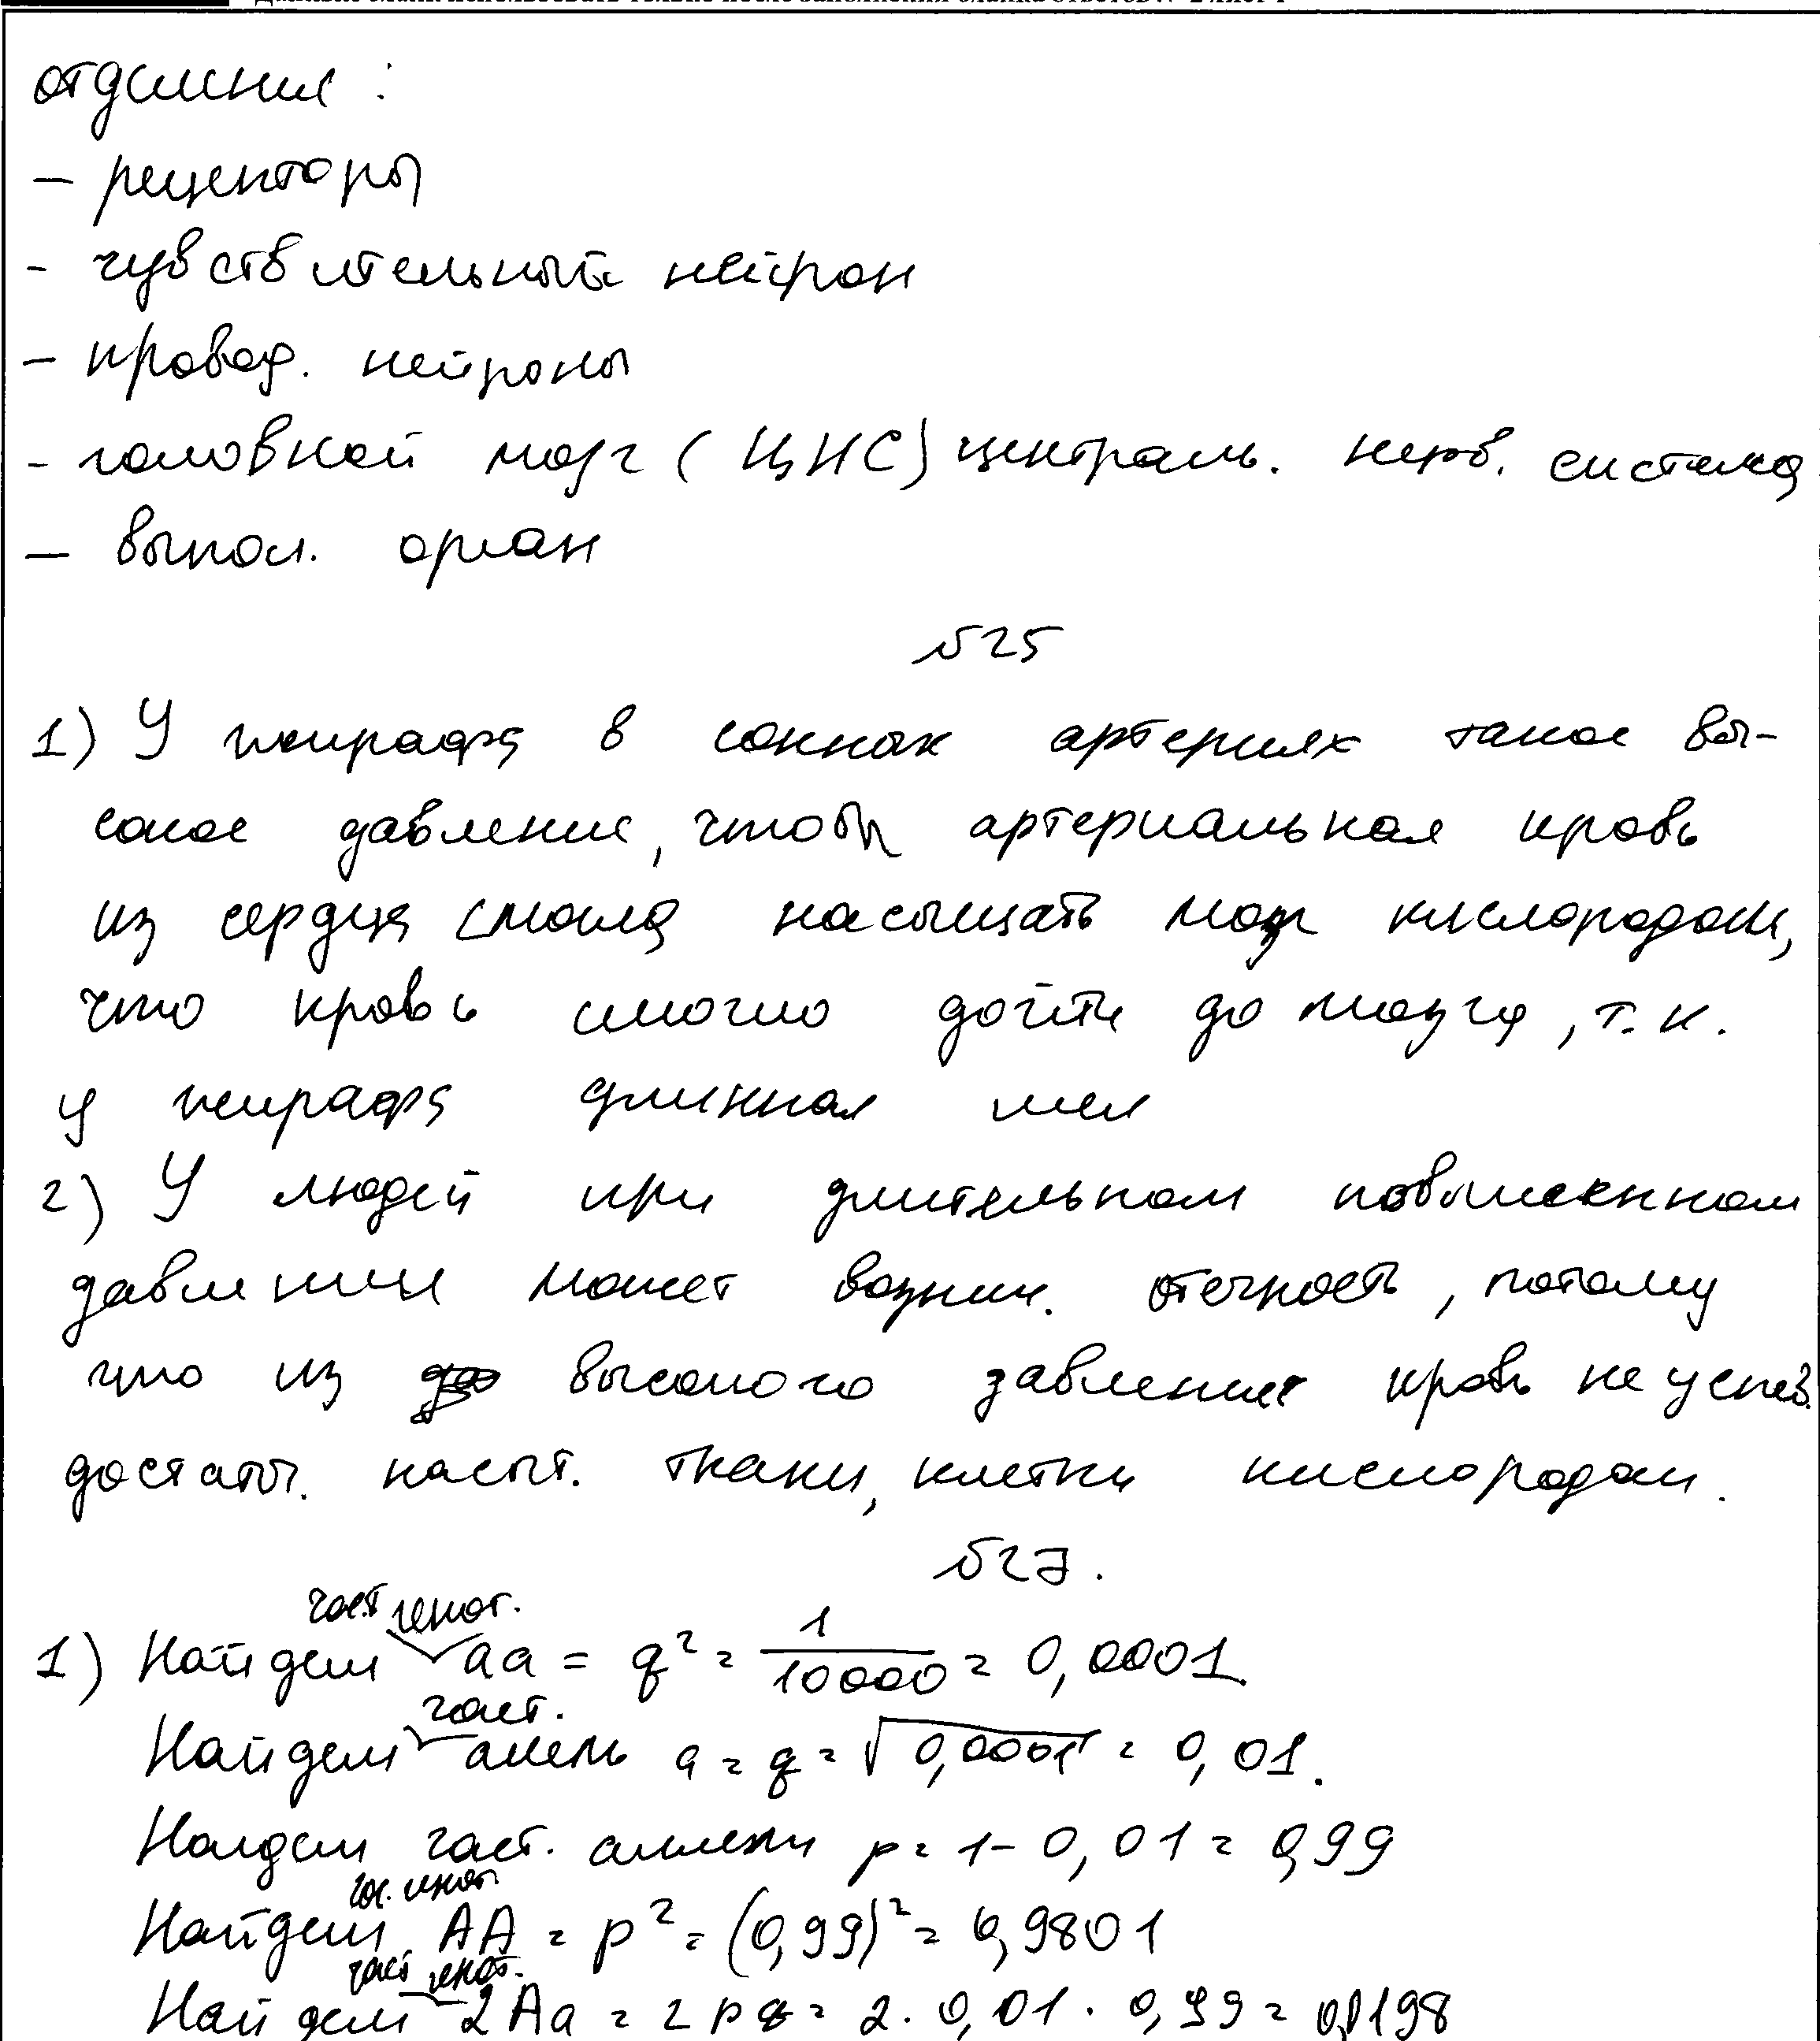 отделения :
– рецепторы
- чувствительный нейрон
– провод. нейроны
- головной мозг (ЦНС) централь. нерв. система
– выпол. орган
№25
1) У жирафа в сонных артериях такое вы-
сокое давление, чтобы артериальная кровь
из сердца смогла насыщать мозг кислородом,
что кровь смогло дойти до мозга, т.к.
у жирафа длинная шея
2) У людей при длительном повышенном
давлении может возник. отечность, потому
что из высокого давления кровь не успев.
достаточ. насыт. ткани, клетки кислородом.
№27.
част генот.
1) Найдем aa = q² = 1/10000 = 0,0001
част.
Найдем алель a = q = √0,0001 = 0,01.
Найдем част. аллели p = 1 - 0,01 = 0,99
час. генот.
Найдем AA = p² = (0,99)² = 0,9801
част генот.
Найдем 2Aa = 2pq = 2 · 0,01 · 0,99 = 0,0198